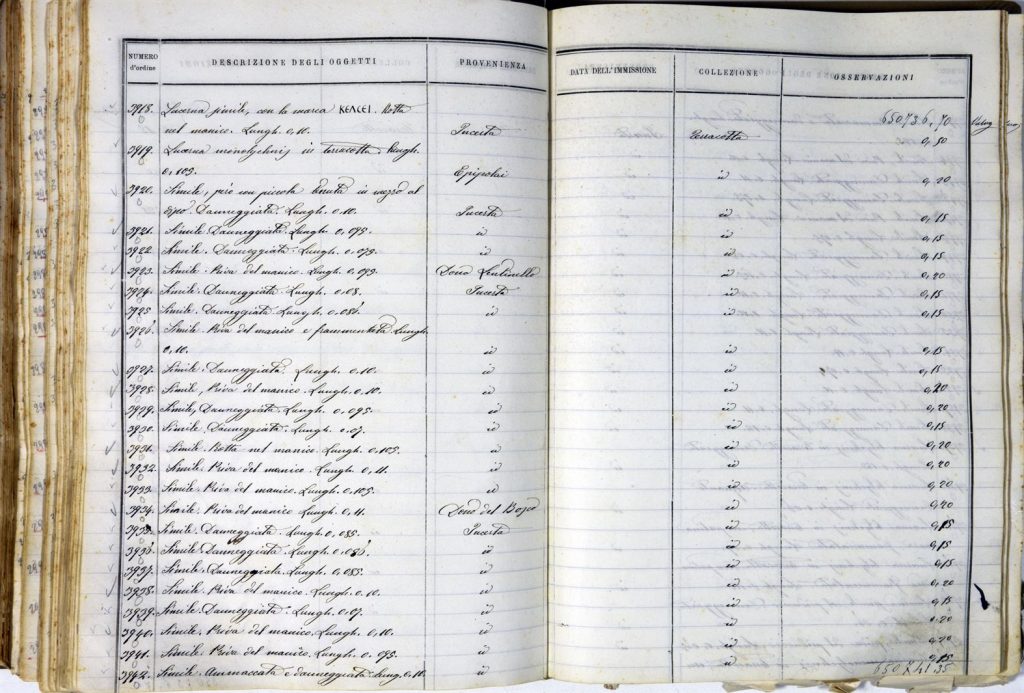 NUMERO d'ordine DESCRIZIONE DEGLI OGGETTI PROVENIENZA DATA DELL'IMMISSIONE COLLEZIONE OSSERVAZIONI
650736,70
3918. Lucerna simile, con la marca KEΛCEI. Rotta
nel manico. Lungh. 0,10. Incerta Terracotta 0,50
3919. Lucerna monolychnis in terracotta. Lungh.
0,109. Epipoli id 0,20
3920. Simile, però con piccola in mezzo al
Danneggiata. Lungh. 0,10. Incerta id 0,15
3921. Simile. Danneggiata. Lungh. 0,095. id id 0,15
3922. Simile. Danneggiata. Lungh. 0,079. id id 0,15
3923. Simile. Priva del manico. Lungh. 0,099. Dono id 0,20
3924. Simile. Danneggiata. Lungh. 0,08. Incerta id 0,15
3925 Simile. Danneggiata. Lungh. 0,086. id id 0,15
3926. Simile. Priva del manico e frammentata Lungh.
0,10. id id 0,15
3927. Simile. Danneggiata. Lungh. 0,10. id id 0,15
3928. Simile, Priva del manico. Lungh. 0,10. id id 0,20
3929. Simile, Danneggiata. Lungh. 0,095. id id 0,20
3930. Simile. Danneggiata. Lungh. 0,07. id id 0,15
3931. Simile. Rotta nel manico. Lungh. 0,105. id id 0,20
3932. Simile. Priva del manico. Lungh. 0,11. id id 0,20
3933. Simile. Priva del manico. Lungh. 0,105. id id 0,20
3934. Simile. Priva del manico. Lungh. 0,11. Dono del Bosco id 0,20
3935. Simile. Danneggiata. Lungh. 0,085. Incerta id 0,15
3936. Simile. Danneggiata. Lungh. 0,086. id id 0,15
3937. Simile. Danneggiata. Lungh. 0,085. id id 0,15
3938. Simile. Priva del manico. Lungh. 0,10. id id 0,20
3939. Simile. Danneggiata. Lungh. 0,07. id id 0,15
3940. Simile. Priva del manico. Lungh. 0,10. id id 0,20
3941. Simile. Priva del manico. Lungh. 0,095. id id 0,20
3942. Simile. Ammaccata e danneggiata. Lung. 0,10. id id 0,15
650741.35